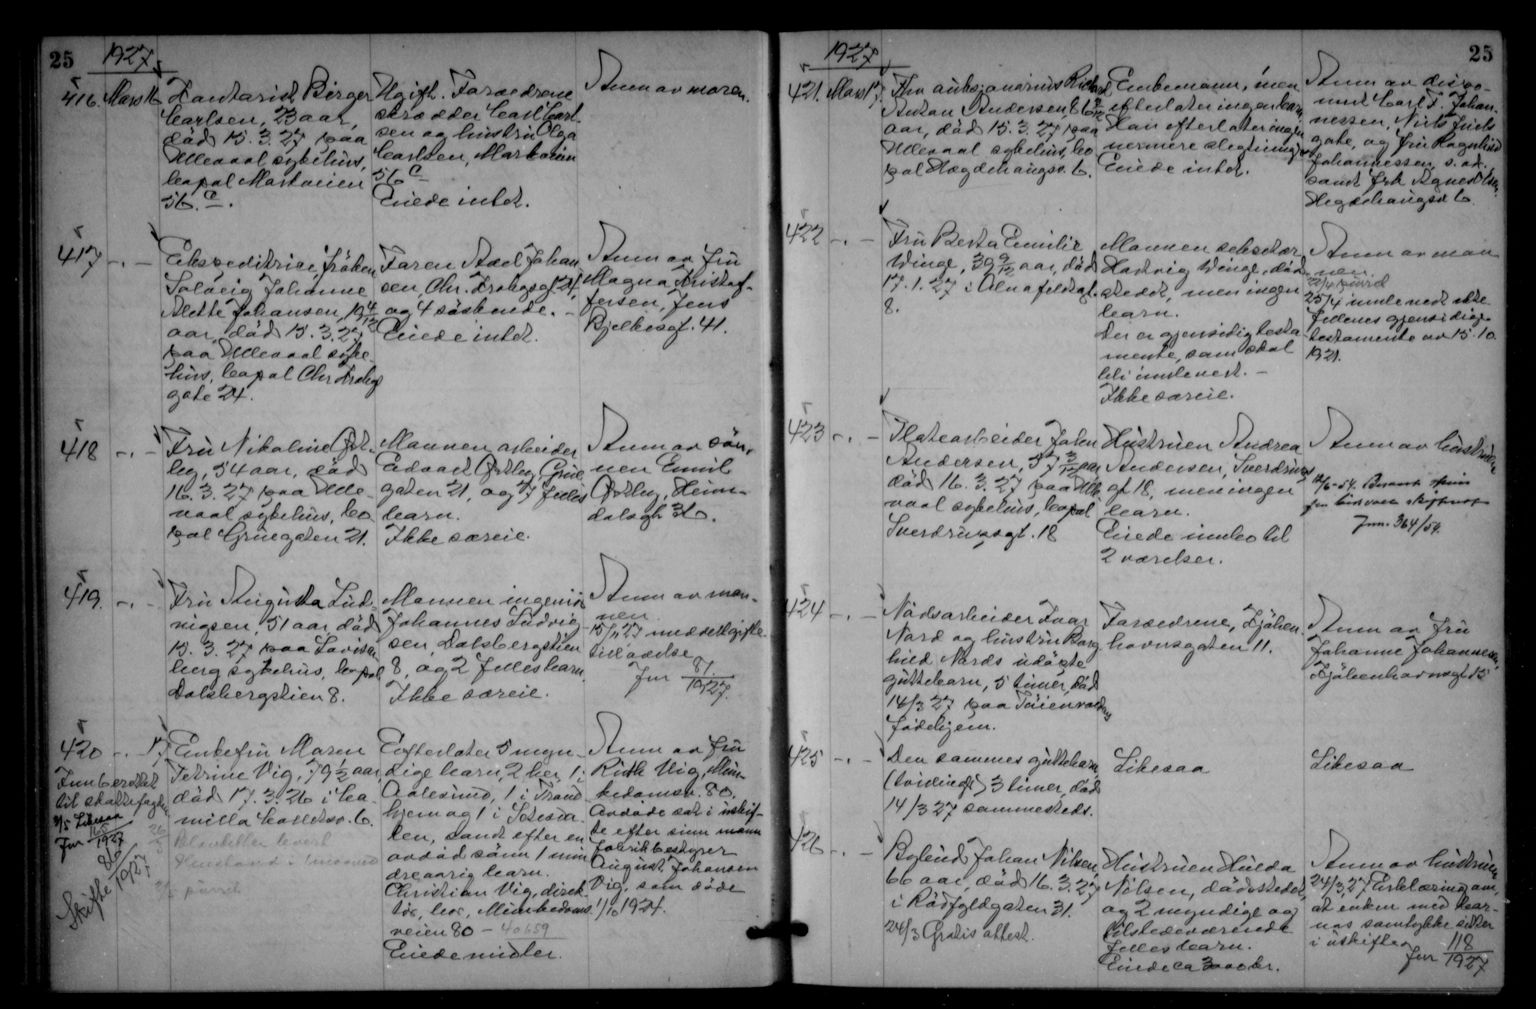 25
1927
416. Mars 16
Kontorist Birger
Carlsen, 23 aar,
død 15.3.27 paa
Ullevaal sykehus,
bopæl Markveien
56 c.
Ugift. Forældrene
skrædder Carl Carl-
sen og hustru Olga
Carlsen, Markveien
56 c
Eiede intet.
Anm av moren.
417 -.- -
Ekspeditrice, frøken
Solveig Johanne
Alette Johansen, 19 4/12
aar, død 15.3.27
paa Ullevaal syke-
hus, bopæl Chr. Krohgs
gate 24.
Faren Axel Johan
sen, Chr. Krohgsgt. 24,
og 4 søskende. -
Eiede intet.
Anm av fru
Magna Kristof-
fersen, Jens
Bjelkesgt. 41.
418 -.- -
Fru Nikoline Øst-
by, 54 aar, død
16.3.27 paa Ulle-
vaal sykehus, bo
pæl Grüegaten 21.
Mannen arbeider
Edvard Østby, Grüe
gaten 21, og 7 fælles
barn.
Ikke særeie.
Anm av søn,
nen Emil
Østby, Heim-
dalsgt 36.
419. -.- -
Fru Augusta Lud-
vigsen, 51 aar, død
15.3.27 paa Lovisen
berg sykehus, bopæl
Dalsbergstien 8.
Mannen ingeniør
Johannes Ludvig
sen, Dalsbergstien
8, og 2 fælles barn.
Ikke særeie.
Anm av man-
nen.
15/11 27 meddelt gifte-
tilladelse
Jnr 81/1927.
420 -.- 17
Enkefru Maren
Petrine Vig, 79 1/2 aar
død 17.3.26 i Ca-
milla Colletsv. 6.
Innberettet
til skattefogden
3/5 Likesaa
Jnr 165/1927
Skifte 86/1927
Efterlater 5 myn-
dige barn, 2 her, 1 i
Aalesund, 1 i Trond
hjem og 1 i
samt efter en
avdød sønn 1 min
dreaarig barn.
Christian Vig, direk
tør, bor, Munkedams
veien 80 - 40659
Eiede midler.
Anm av fru
Ruth Vig, Mun-
kedamsv. 80.
Avdøde sat i uskif-
te efter sinn mann
fabrikbestyrer
August Johansen
Vig, som døde
1/10 1924.
25
1927
421. Mars 17.
Fhv auksjonarius Richard
Anton Andersen, 66
aar, død 15.3.27 paa
Ullevaal sykehus, bo
pæl Hægdehaugsv. 6.
Enkemann, men
efterlater ingen barn
Han efterlater ingen
nærmere slegtninger
Eiede intet.
Anm av
Carl F. Johan-
nessen, Niels Juels
gate, og fru Ragnhild
Johannessen, s. st.
samt frk Agnes
Hegdehaugsv 6.
422 -.- -
Fru Berta Emilie
Winge, 39 9/12 aar, død
17.1.27 i Alnafeltgt.
8.
Mannen sekretær
Hartvig Winge, døds-
stedet, men ingen
barn.
Der er gjensidig testa
mente, som skal
bli innlevert. -
Ikke særeie.
Anm av man
nen
22/4 purret
25/4 innlevert ekte
fellenes gjensidige
testamente av 15.10
1921.
423 -.- -
Platearbeider John
Andersen, 57 3/12 aar
død 16.3.27 paa Ulle
vaal sykehus, bopæl
Sverdrupsgt. 18
Hustruen Andrea
Andersen, Sverdrups
gt 18, men ingen
barn.
Eiede innbo til
2 værelser.
Anm av hustruen
Jnn. 364/54.
424 -.- -
Nødsarbeider Ivar
Nord og hustru Borg
hild Nords udøpte
guttebarn, 5 timer, død
14/3 27 paa Tøienvolden
fødehjem.
Forældrene, Kjøben
havnsgaten 11.
Anm av fru
Johanne Johannesen,
Kjøbenhavnsgt 15
425 -.- -
Den sammes guttebarn
(tvilling) 3 timer, død
14/3 27 sammesteds.
Likesaa
Likesaa
426 -.- -
Bybud Johan Nilsen,
66 aar, død 16.3.27
i Rødfyldgaten 31.
24/3 Gratis attest.
Hustruen Hulda
Nilsen, dødsstedet,
og 2 myndige og
tilstedeværende
fælles barn.
Eiede ca 3000 kr.
Anm av hustruen
24/3.27 Erklæring om,
at enken med bar-
nas samtykke sitter
i uskifte
Jnr 118/1927